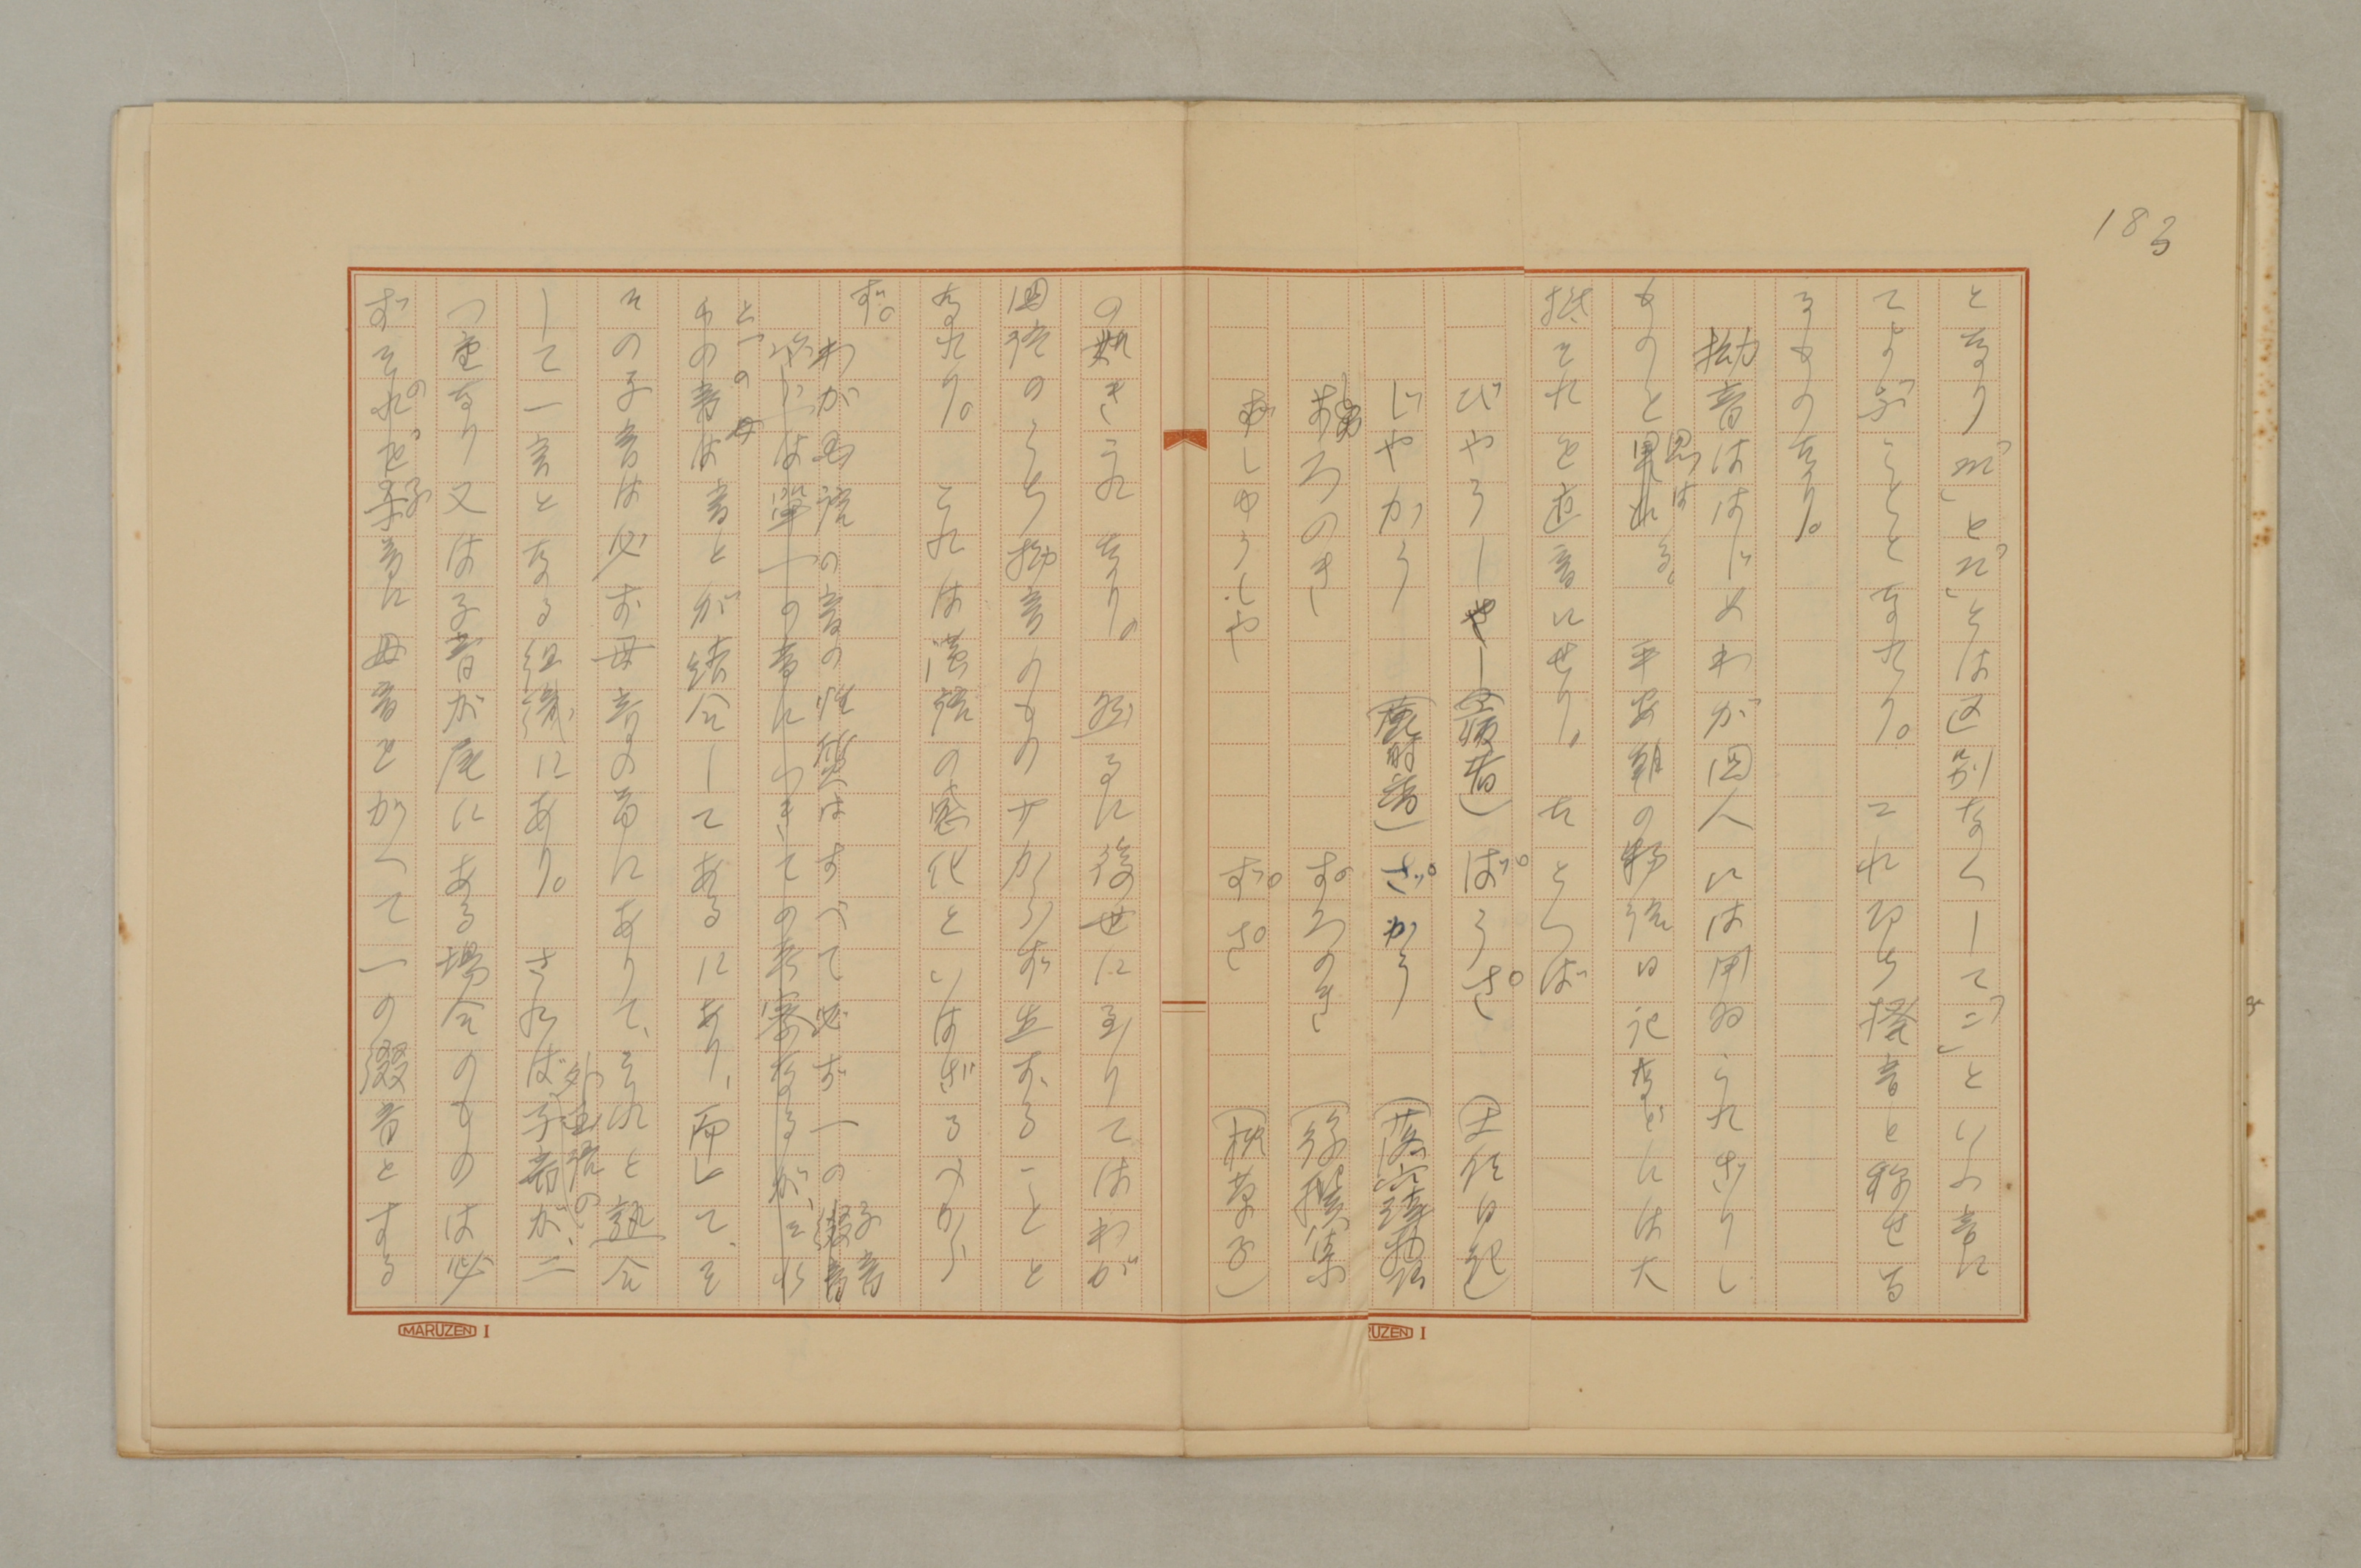 183
となり「m」と「n」とは区別なくして「ン」といふ音に
てよぶこととなれり。これ即ち撥音と称せる
るものなり。
拗音ははじめわが国人には用ゐられざりし
ものと思はる。平安朝の物語日記などには大
抵それを直音にせり。たとへば
びやうしや(病者) ばうざ (土佐日記)
じやかう(麝射香) ざかう (落窪物語
ずろのき (後撰集
ずしゆうしや ずさ (枕草子)
の如きこれなり。然るに後世に至りてはわが
国語のうち拗音のもの少からず生ずることと
なれり。これは漢語の感化といはざるべから
ず。
わが国語の音の性質はすべて必ず一の子音
と一の母
音とが結合してあるにあり、而して、そ
その子音は必ず母音の首にありて、それと熟合
して一音となる組織にあり。されば外国語の子音が、二
つ重なり又は子音が尾にある場合のものは必
ずそれの子音に母音を加へて一の綴音とする
MARUZEN I
RUZEN I